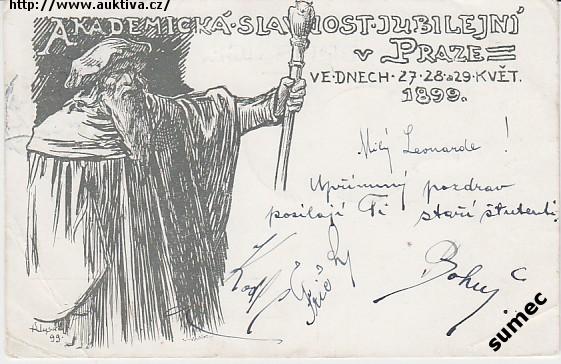 http://www.auktiva.cz/
AKADEMICKÁ·SLAVNOST·JUBILEJNÍ
V PRAZE
VE·DNECH·27·28·a29·KVĚT.
1899.
Milý Leonarde !
Upřímný pozdrav
posílají Ti staří studenti.
99.
sumec